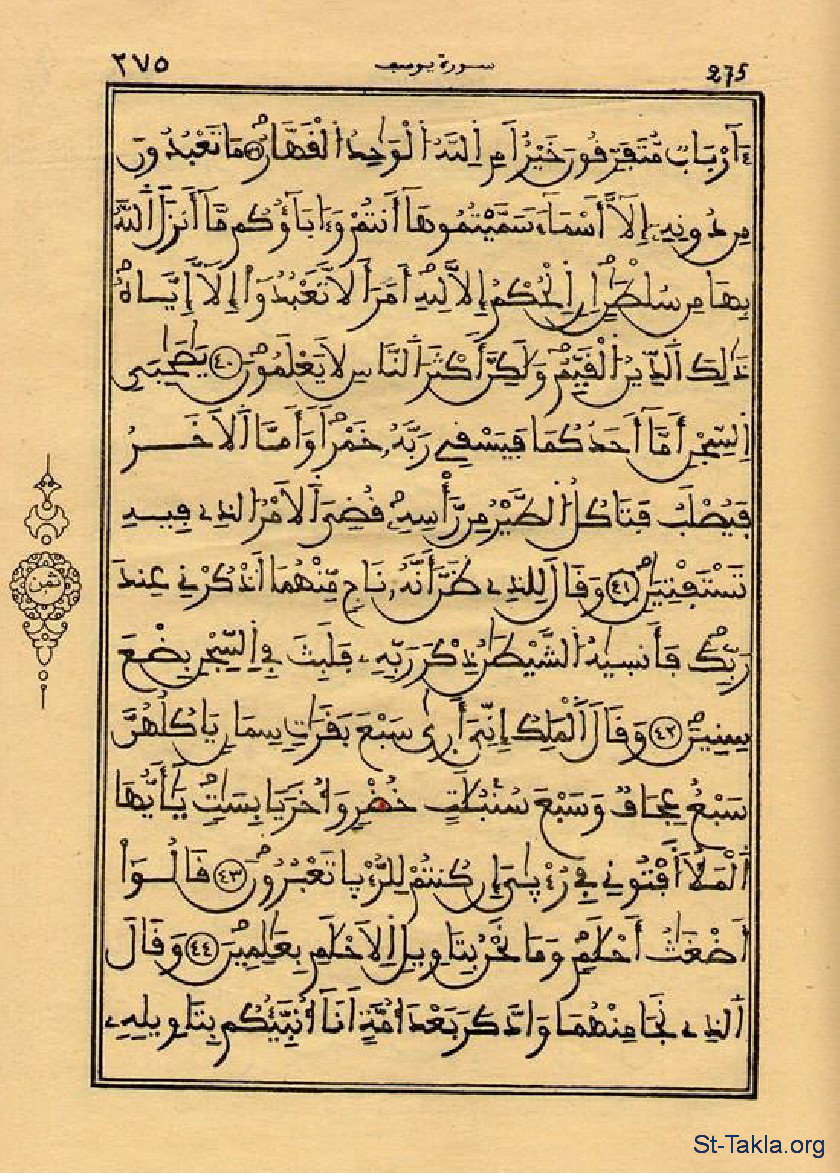 ٢٧٥ سورة يوسف 275
ءَآرْبَابٌ مُّتَفَرِّقُونَ خَيْرٌ اَمِ اِللَّهُ اُلْوَٰحِدُ اُلْقَهَّارُ ٣٩ مَا تَعْبُدُونَ
مِن دُونِهِۦٓ إِلَّآ أَسْمَآءً سَمَّيْتُمُوهَآ أَنتُمْ وَءَابَآؤُكُم مَّآ أَنزَلَ اَللَّهُ
بِهَا مِن سُلْطَٰنٍ اِنِ اِلْحُكْمُ إِلَّا لِلهِ أَمَرَ أَلَّا تَعْبُدُوٓاْ إِلَّآ إِيَّاهُ
ذَٰلِكَ اَلدِّينُ اُلْقَيِّمُ وَلَٰكِنَّ أَكْثَرَ اَلنَّاسِ لَا يَعْلَمُونَ ٤٠ يَٰصَٰحِبَيِ
اِلسِّجْنِ أَمَّآ أَحَدُكُمَا فَيَسْقِي رَبَّهُۥ خَمْرًا وَأَمَّا اَلَاخَرُ
فَيُصْلَبُ فَتَاكُلُ اُلطَّيْرُ مِن رَّأْسِهِۦ قُضِيَ اَلَامْرُ اُلذِے فِيهِ
تَسْتَفْتِيَٰنِ ٤١ وَقَالَ لِلذِے ظَنَّ أَنَّهُۥ نَاجٍ مِّنْهُمَا اَذْكُرْنِي عِندَ
رَبِّكَ فَأَنسَيٰهُ اُلشَّيْطَٰنُ ذِكْرَ رَبِّهِۦ فَلَبِثَ فِي اِلسِّجْنِ بِضْعَ
سِنِينَ ٤٢ وَقَالَ اَلْمَلِكُ إِنِّيَ أَرَىٰ سَبْعَ بَقَرَٰتٍ سِمَانٍ يَاكُلُهُنَّ
سَبْعٌ عِجَافٌ وَسَبْعَ سُنۢبُلَٰتٍ خُضْرٍ وَأُخَرَ يَابِسَٰتٍ يَٰٓأَيُّهَا
اَلْمَلَأُ اَفْتُونِي فِي رُءْيَٰيَ إِن كُنتُمْ لِلرُّءْيَا تَعْبُرُونَ ٤٣ قَالُوٓاْ
أَضْغَٰثُ أَحْلَٰمٍ وَمَا نَحْنُ بِتَاوِيلِ اِلَاحْلَٰمِ بِعَٰلِمِينَ ٤٤ وَقَالَ
اَلذِے نَجَا مِنْهُمَا وَادَّكَرَ بَعْدَ أُمَّةٍ اَنَآ أُنَبِّئُكُم بِتَاوِيلِهِۦ
ثمن
St-Takla.org